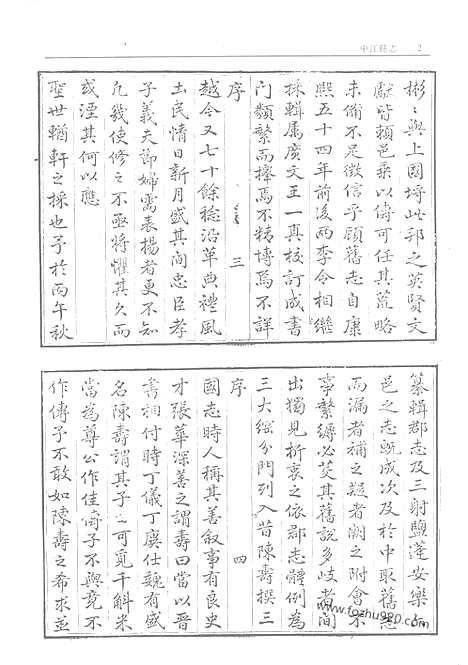 中江縣志 2
彬〻與上國埒此邦之英賢文
獻皆賴邑乘以傳可任其荒略
未備不足徵信乎顧舊志自康
熙五十四年前後兩李令相繼
採輯屬廣文王一真校訂成書
門類繁而擇焉不精博焉不詳
序 三
越今又七十餘稔沿革典禮風
土民情日新月盛其間忠臣孝
子義夫節婦需表揚者更不知
凡幾使修之不亟將懼其久而
或湮其何以應
聖世輶軒之採也予於丙午秋
纂輯郡志及三射鹽蓬安樂各
邑之志既成次及於中取舊志
而漏者補之疑者闕之附會不
事繁縟必芟其舊說多歧者間
出獨見折衷之依郡志體例為
三大綜分門列入昔陳壽撰三
序 四
國志時人稱其善叙事有良史
才張華深善之謂壽曰當以晉
書相付時丁儀丁廙仕魏有盛
名陳壽謂其子〻可覓千斛米
當為尊公作佳傳子不與竟不
作傳予不敢如陳壽之希求並
www.fozhu920.com